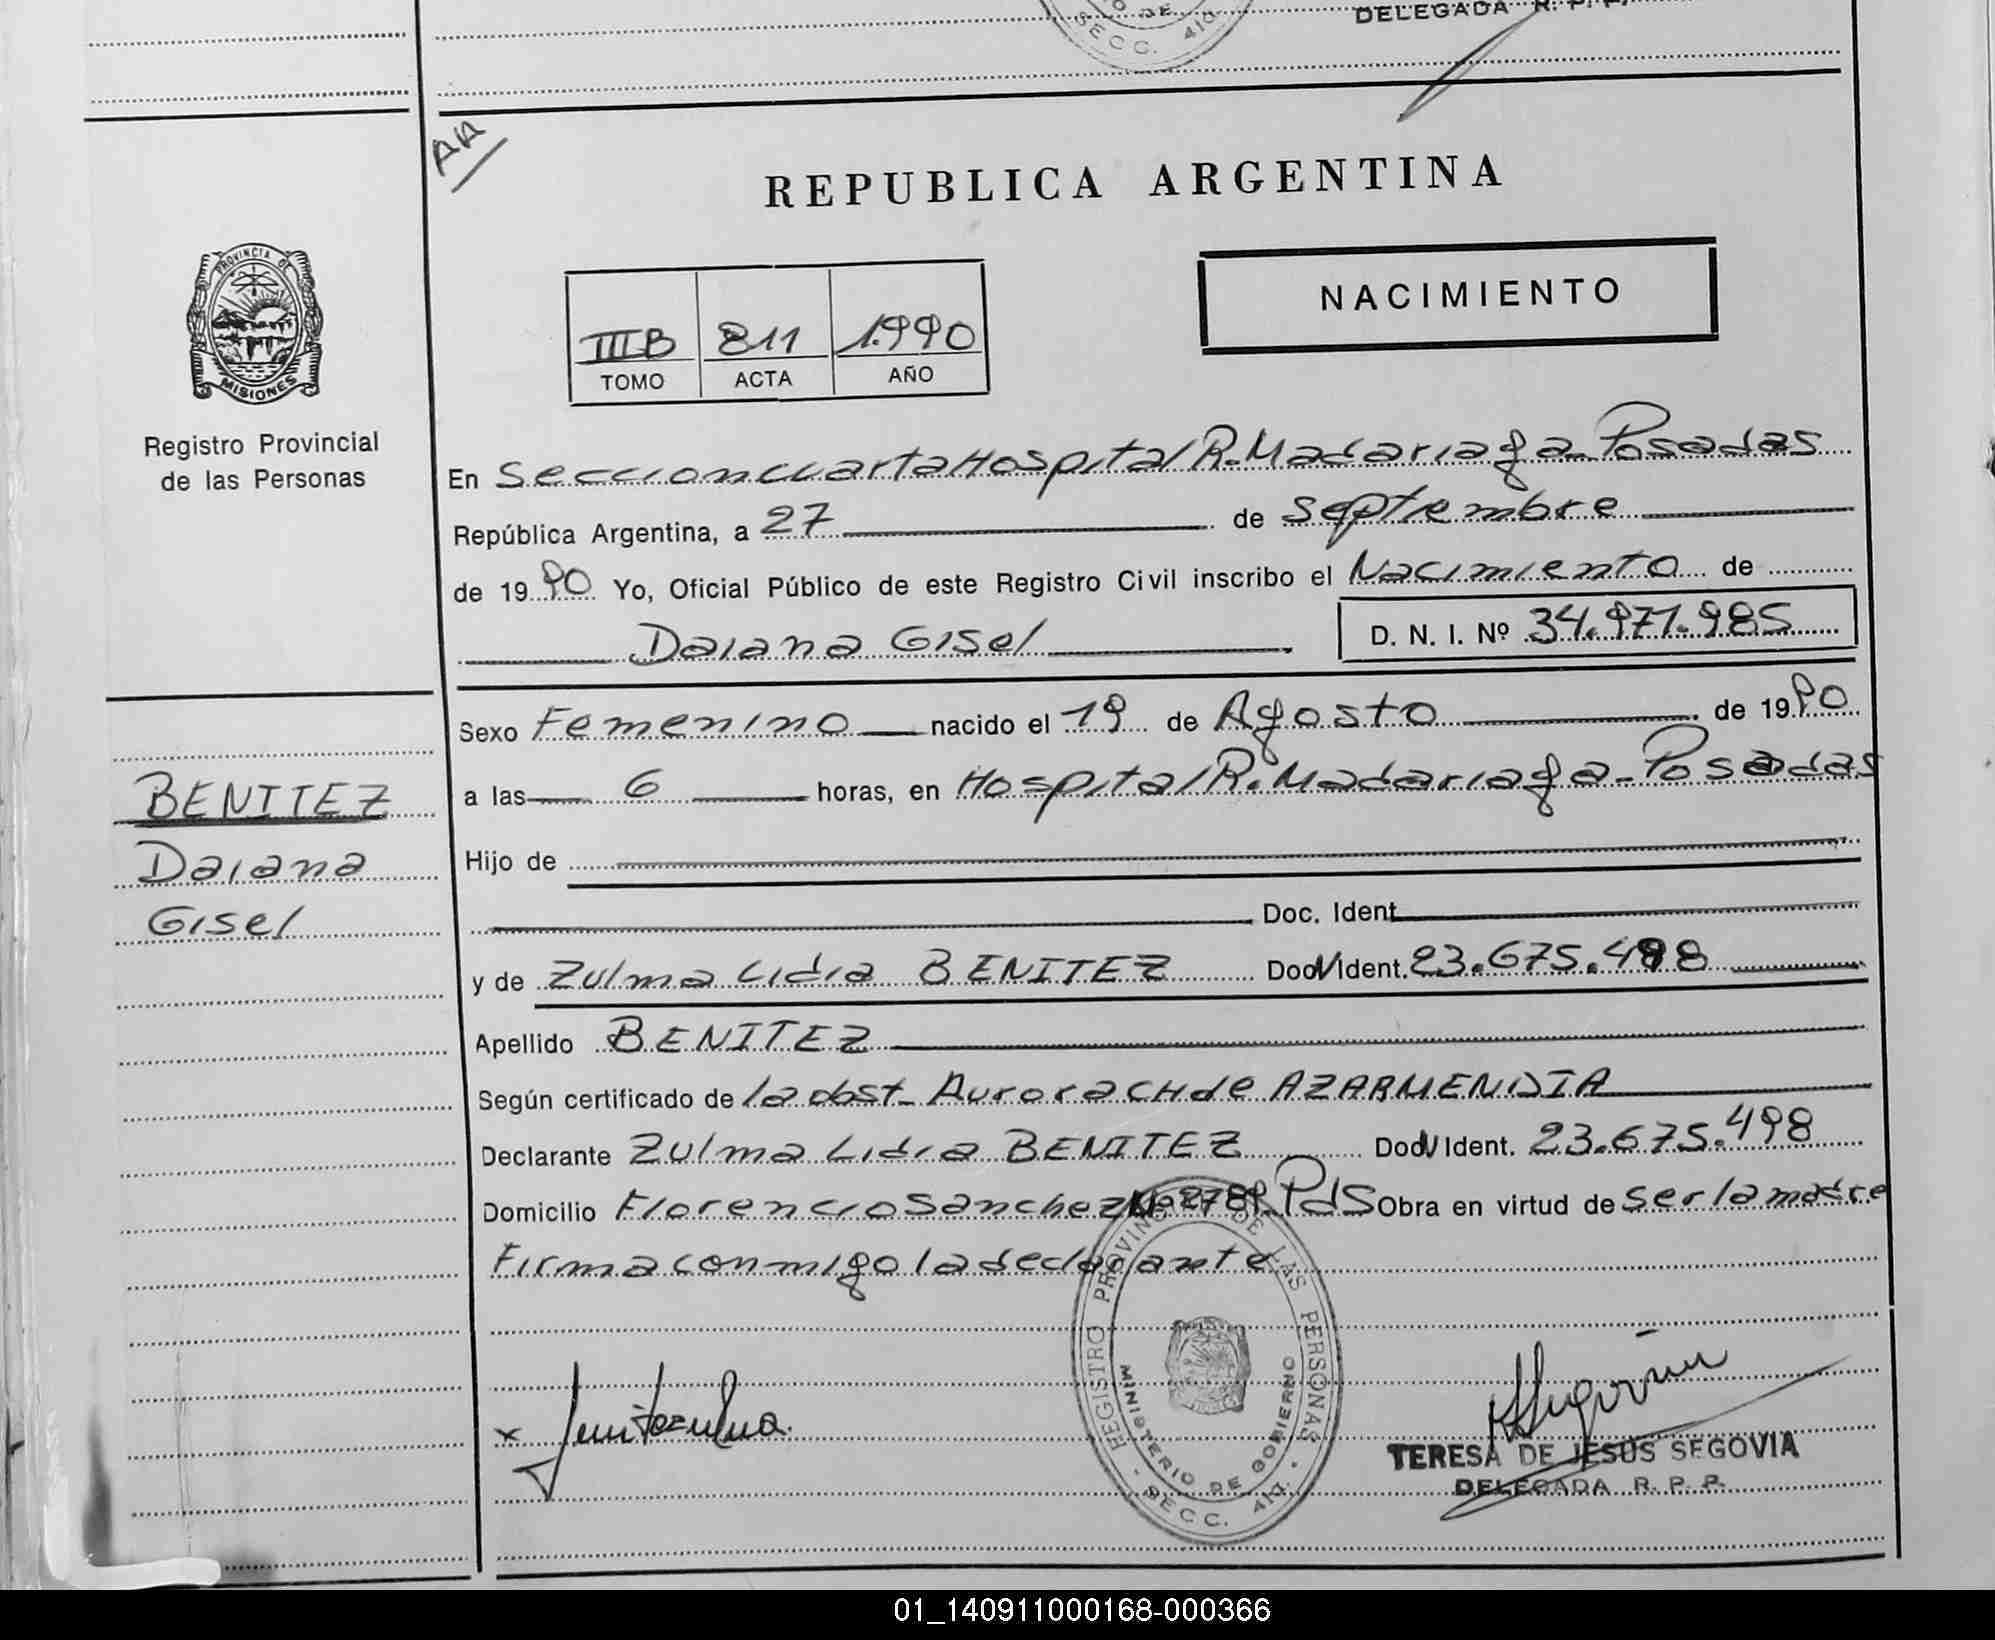 DELEGADA R. P. P.
DE
SECC. 4ta.
AA
REPUBLICA ARGENTINA
PROVINCIA DE
MISIONES
Registro Provincial
de las Personas
IIIB 811 1.990
TOMO ACTA AÑO
NACIMIENTO
En Seccion cuarta Hospital R. Madariaga - Posadas
República Argentina, a 27 de Septiembre
de 1990 Yo, Oficial Público de este Registro Civil inscribo el Nacimiento de
Daiana Gisel D. N. I. Nº 34.971.985
Sexo Femenino nacido el 19 de Agosto de 1990
a las 6 horas, en Hospital R. Madariaga - Posadas
Hijo de
Doc. Ident.
y de Zulma Lidia BENITEZ Doc. Ident. 23.675.498
Apellido BENITEZ
Según certificado de la obst. Aurora CH de AZARMENDIA
Declarante Zulma Lidia BENITEZ Doc. Ident. 23.675.498
Domicilio Florencio Sanchez Nº 2789 Pds Obra en virtud de ser la madre
Firma conmigo la declarante
BENITEZ
Daiana
Gisel
REGISTRO PROVINCIAL DE LAS PERSONAS
MINISTERIO DE GOBIERNO
SECC. 4ta.
TERESA DE JESUS SEGOVIA
DELEGADA R. P. P.
01_140911000168-000366